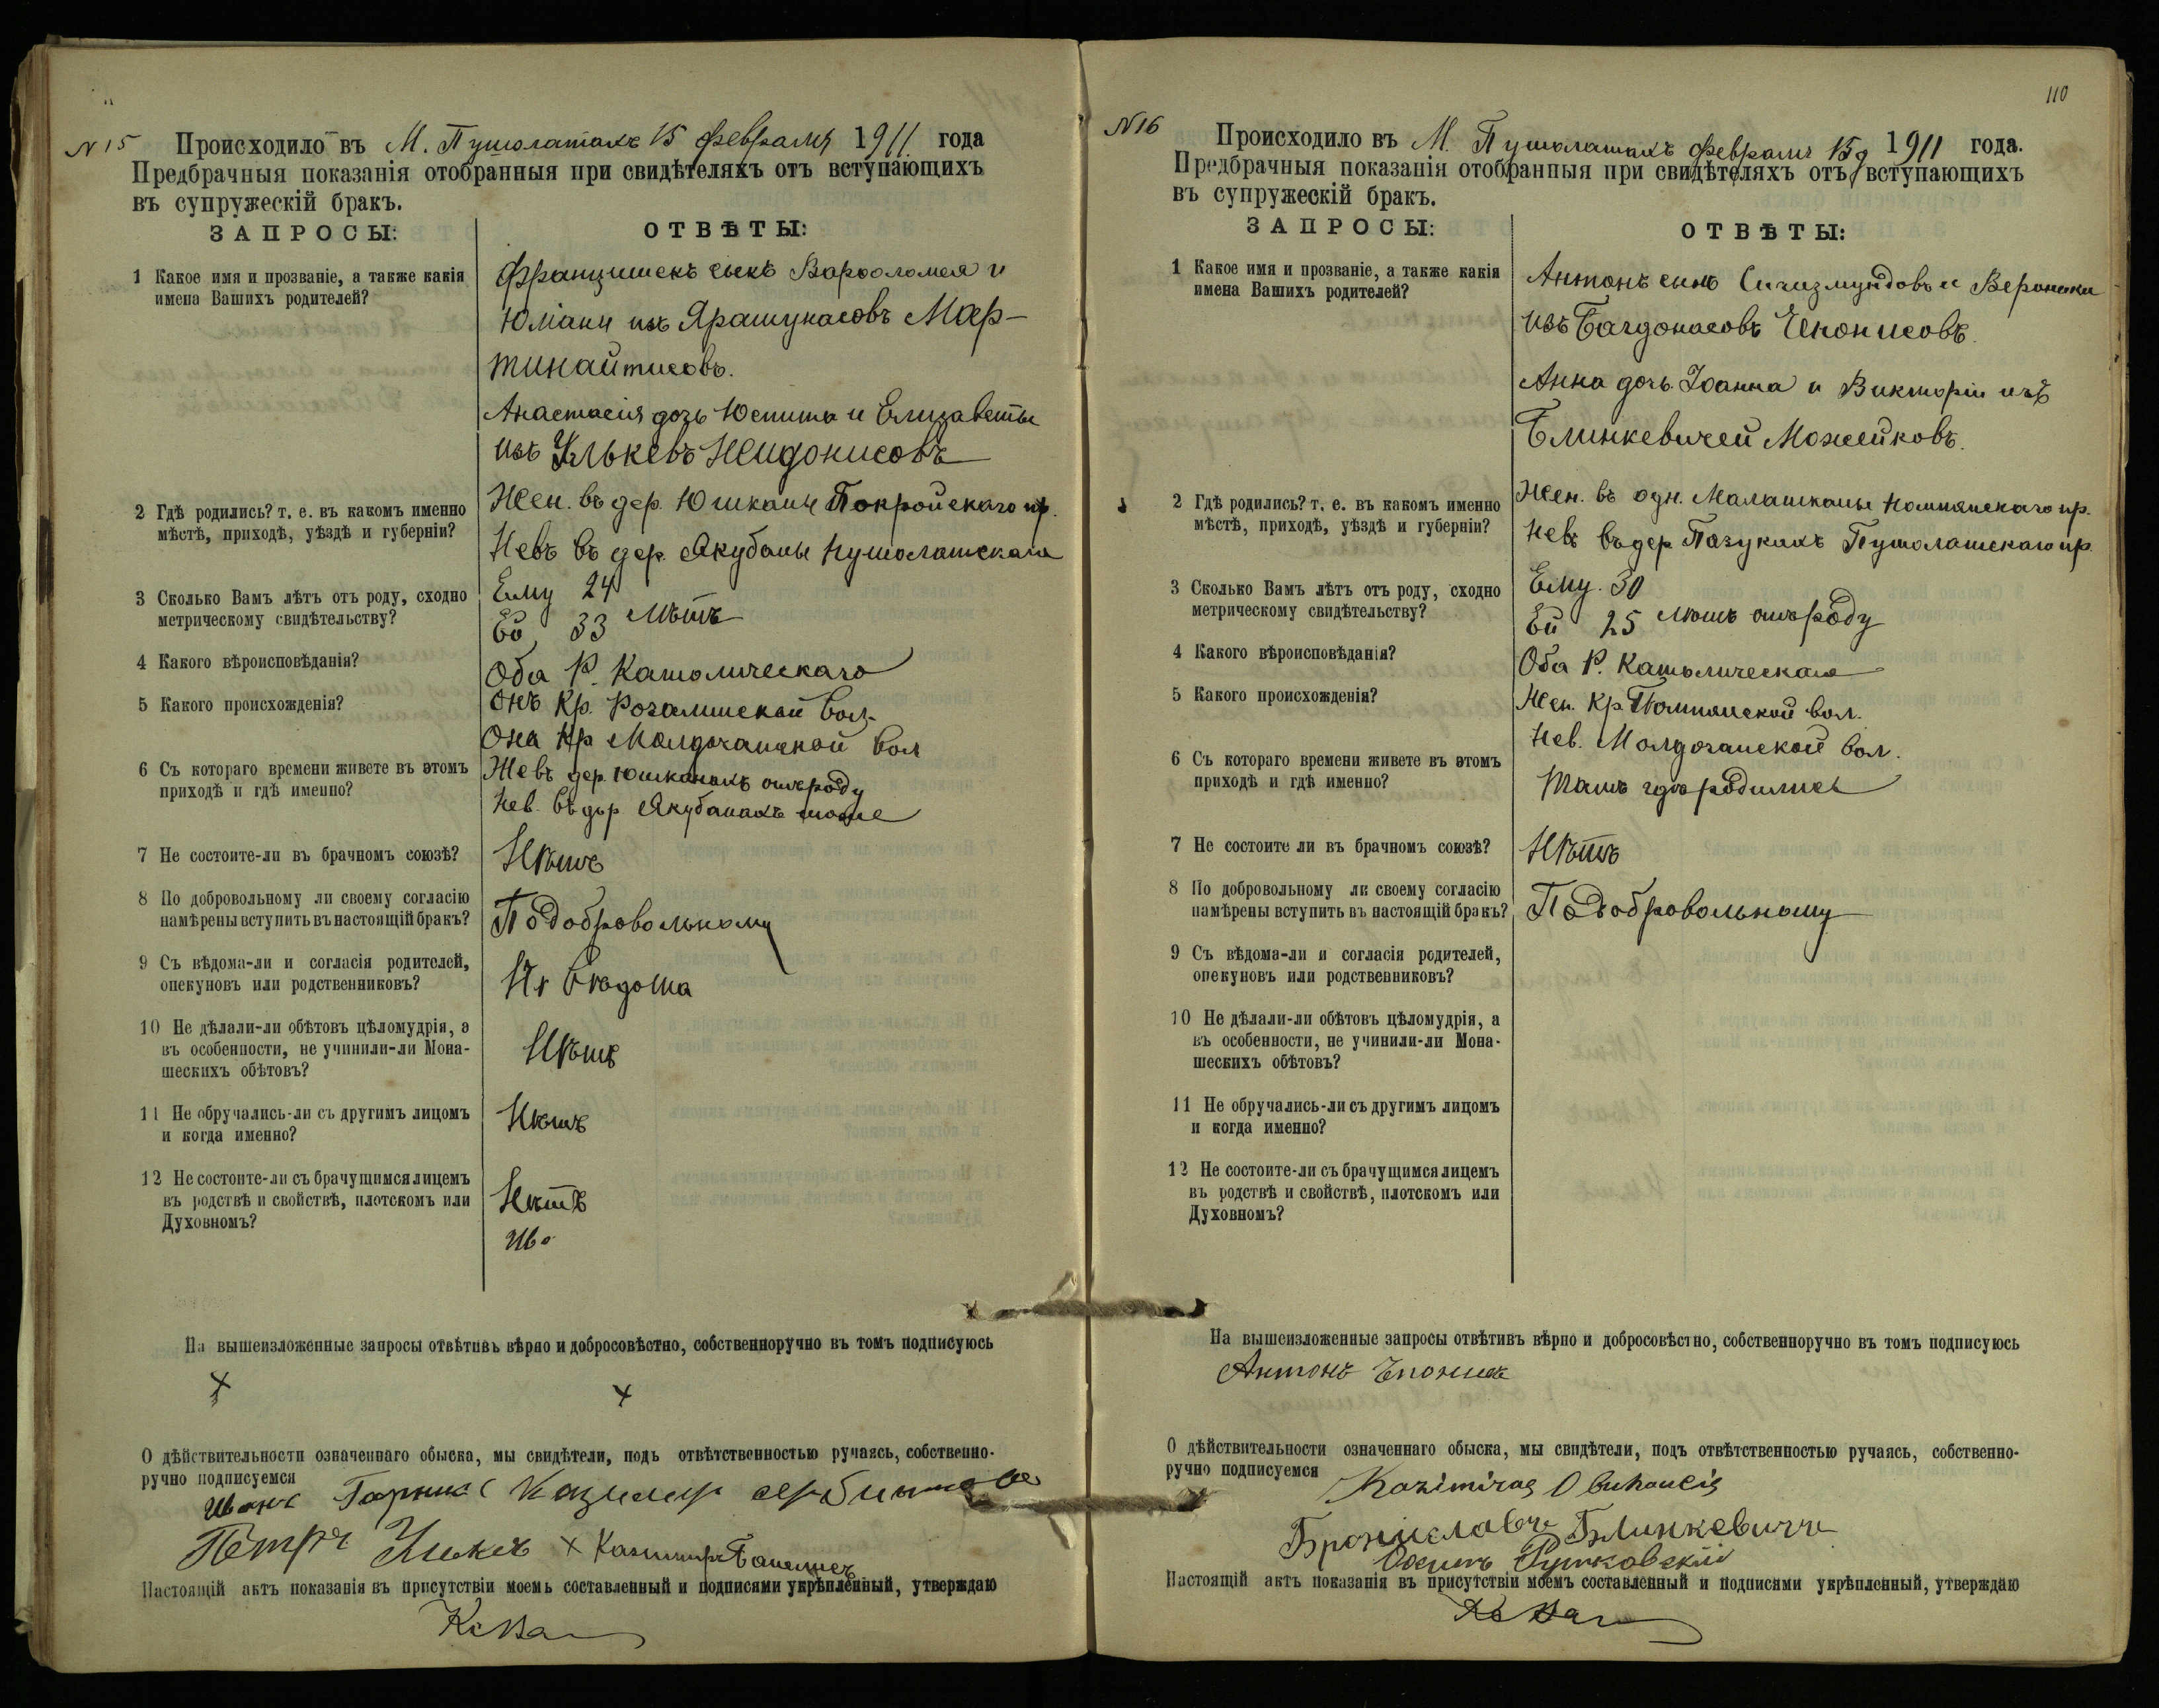 N 15
Происходило въ М. Пушолатахъ 15 февраля 1911 года
Предбрачныя показанія отобранныя при свидѣтеляхъ отъ вступающихъ
въ супружескій бракъ.
ЗАПРОСЫ:
ОТВѢТЫ:
1 Какое имя и прозваніе, а также какія
имена Вашихъ родителей?
Францишекъ сынъ Варфоломея и
Юліаны изъ Ярашунасовъ Мар-
тинайтисовъ.
Анастасія дочь Юепита и Елизаветы
изъ Улькевъ Жидонисовъ
2 Гдѣ родились? т. е. въ какомъ именно
мѣстѣ, приходѣ, уѣздѣ и губерніи?
Жен. въ дер. Юшканы Покройскаго пр.
Невъ въ дер. Якубаны Пушолатскаго
3 Сколько Вамъ лѣтъ отъ роду, сходно
метрическому свидѣтельству?
Ему 24
Ей 33 лѣтъ
4 Какого вѣроисповѣданія?
Оба Р. Католическаго
5 Какого происхожденія?
Онъ Кр. Розалинской вол.
Она Кр Молдочанской вол
6 Съ котораго времени живете въ этомъ
приходѣ и гдѣ именно?
Жевъ дер. Юшканахъ отъ роду
Нев. въ дер Якубанахъ тоже
7 Не состоите-ли въ брачномъ союзѣ?
Нѣтъ
8 По добровольному ли своему согласію
намѣрены вступить въ настоящій бракъ?
По добровольному
9 Съ вѣдома-ли и согласія родителей,
опекуновъ или родственниковъ?
вѣдома
10 Не дѣлали-ли обѣтовъ цѣломудрія, а
въ особенности, не учинили-ли Мона-
шескихъ обѣтовъ?
Нѣтъ
11 Не обручались-ли съ другимъ лицомъ
и когда именно?
Нѣтъ
12 Не состоите-ли съ брачущимся лицемъ
въ родствѣ и свойствѣ, плотскомъ или
Духовномъ?
Нѣтъ
Ив
На вышеизложенные запросы отвѣтивъ вѣрно и добросовѣстно, собственноручно въ томъ подписуюсь
+ +
О дѣйствительности означеннаго обыска, мы свидѣтели, подъ отвѣтственностью ручаясь, собственно-
ручно подписуемся
Иванъ Казимир
Петръ + Казимиръ
Настоящій актъ показанія въ присутствіи моемъ составленный и подписями укрѣпленный, утверждаю
110
N 16
Происходило въ М. Пушолатахъ февраля 15 д 1911 года.
Предбрачныя показанія отобранныя при свидѣтеляхъ отъ вступающихъ
въ супружескій бракъ.
ЗАПРОСЫ:
ОТВѢТЫ:
1 Какое имя и прозваніе, а также какія
имена Вашихъ родителей?
Антонъ сынъ Сигизмундовъ и Вероники
изъ Багдонасовъ Чпонисовъ.
Анна дочь Іоанна и Викторіи изъ
Блинкевичей Можейковъ.
2 Гдѣ родились? т. е. въ какомъ именно
мѣстѣ, приходѣ, уѣздѣ и губерніи?
Жен. въ одн. Малашканы Помпянскаго пр.
Невъ въ дер Пазукахъ Пушолатскаго пр.
3 Сколько Вамъ лѣтъ отъ роду, сходно
метрическому свидѣтельству?
Ему. 30
Ей 25 лѣтъ отъ роду
4 Какого вѣроисповѣданія?
Оба Р. Католическаго
5 Какого происхожденія?
Жен. Кр Помпянской вол.
Нев. Молдочанской вол.
6 Съ котораго времени живете въ этомъ
приходѣ и гдѣ именно?
Тамъ гдѣ родились
7 Не состоите ли въ брачномъ союзѣ?
Нѣтъ
8 По добровольному ли своему согласію
намѣрены вступить въ настоящій бракъ?
По добровольному
9 Съ вѣдома-ли и согласія родителей,
опекуновъ или родственниковъ?
10 Не дѣлали-ли обѣтовъ цѣломудрія, а
въ особенности, не учинили-ли Мона-
шескихъ обѣтовъ?
11 Не обручались-ли съ другимъ лицомъ
и когда именно?
12 Не состоите-ли съ брачущимся лицемъ
въ родствѣ и свойствѣ, плотскомъ или
Духовномъ?
На вышеизложенные запросы отвѣтивъ вѣрно и добросовѣстно, собственноручно въ томъ подписуюсь
Антонъ
О дѣйствительности означеннаго обыска, мы свидѣтели, подъ отвѣтственностью ручаясь, собственно-
ручно подписуемся
Kazimiras
Брониславъ Блинкевичъ
Осипъ Рутковскій
Настоящій актъ показанія въ присутствіи моемъ составленный и подписями укрѣпленный, утверждаю